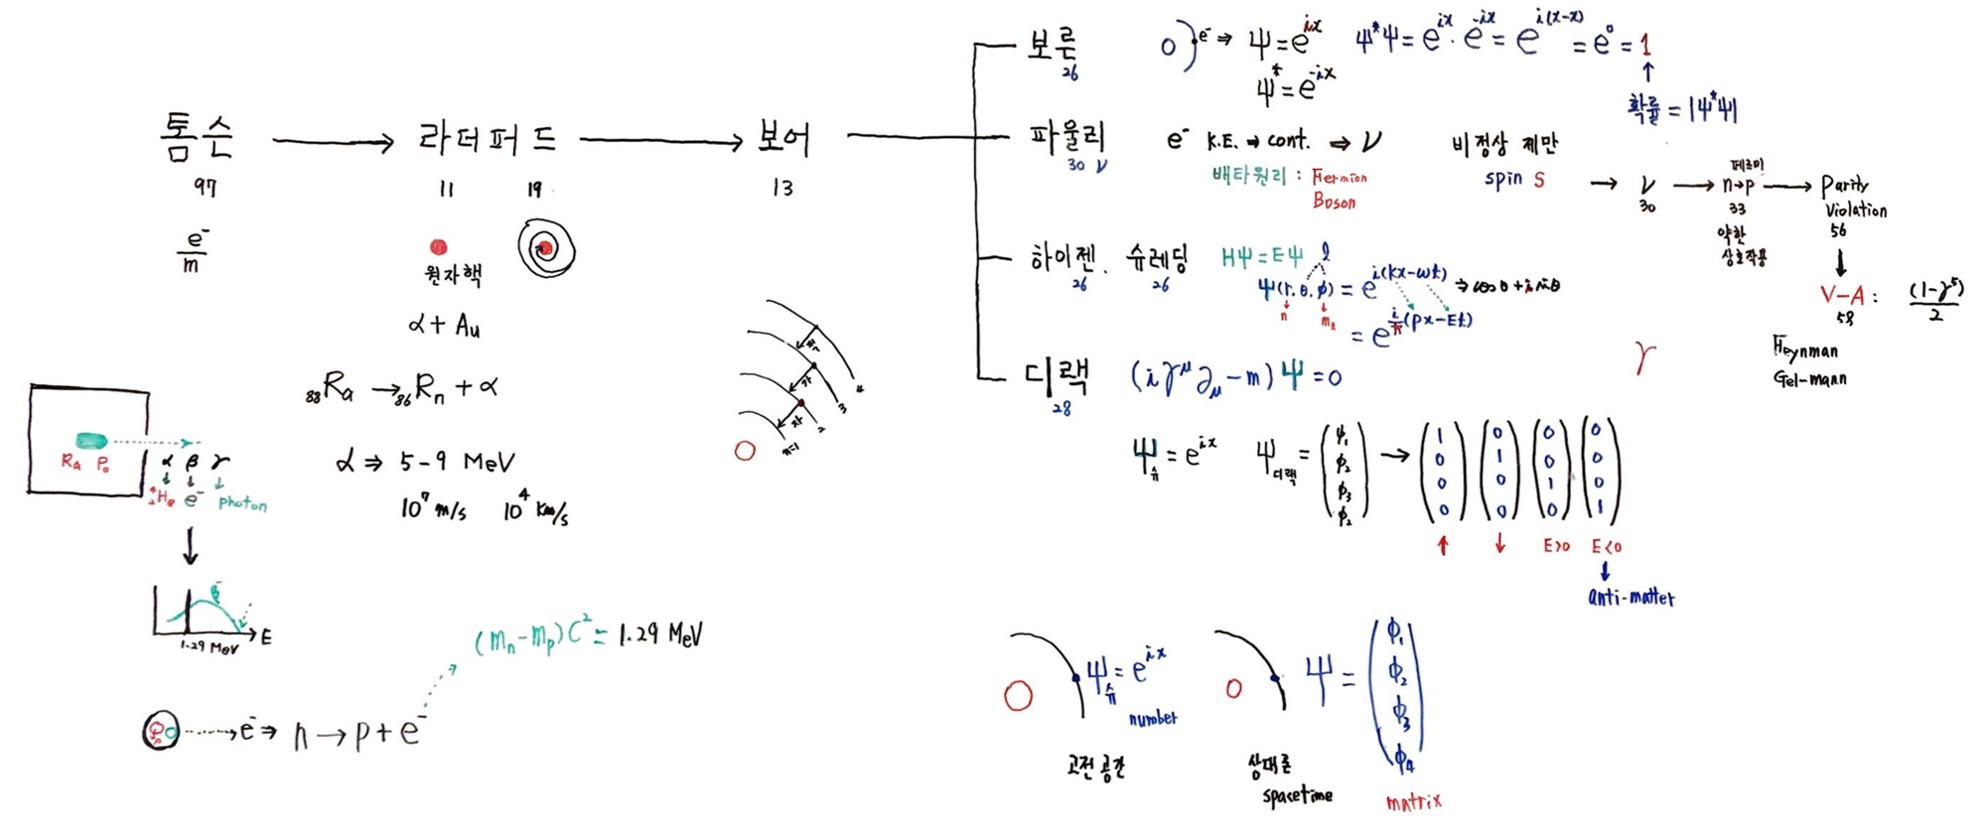 톰슨 → 라더퍼드 → 보어
97
11 19
13
e⁻/m
원자핵
α + Au
₈₈Ra → ₈₆Rn + α
α ⇒ 5-9 MeV
10⁷ m/s 10⁴ km/s
Ra Po
α β γ
He e⁻ photon
β⁻
1.29 MeV
E
e⁻ ⇒ n → p + e⁻
(mn - mp)C² = 1.29 MeV
n=1 2 3 4
보른
26
e⁻ ⇒ Ψ = e^ix Ψ*Ψ = e^ix · e^-ix = e^i(x-x) = e⁰ = 1
Ψ* = e^-ix
확률 = |Ψ*Ψ|
파울리
30 ν
e⁻ K.E. → cont. ⇒ ν
배타원리 : Fermion
Boson
비정상 제만
spin S
→ ν → n→p → Parity
30
페르미
33
약한
상호작용
Violation
56
V-A : (1-γ⁵)/2
58
Feynman
Gel-mann
γ
하이젠. 슈레딩
26 26
HΨ = EΨ l
Ψ(r, θ, φ) = e^i(kx-ωt) ⇒ cosθ + i sinθ
n ml
= e^i/ħ(px-Et)
디랙
28
(iγ^μ ∂_μ - m)Ψ = 0
Ψ슈 = e^ix Ψ디랙 = (φ1 φ2 φ3 φ2) → (1 0 0 0) (0 1 0 0) (0 0 1 0) (0 0 0 1)
↑ ↓ E>0 E<0
anti-matter
Ψ슈 = e^ix
number
고전 공간
Ψ = (φ1 φ2 φ3 φ4)
상대론
spacetime
matrix